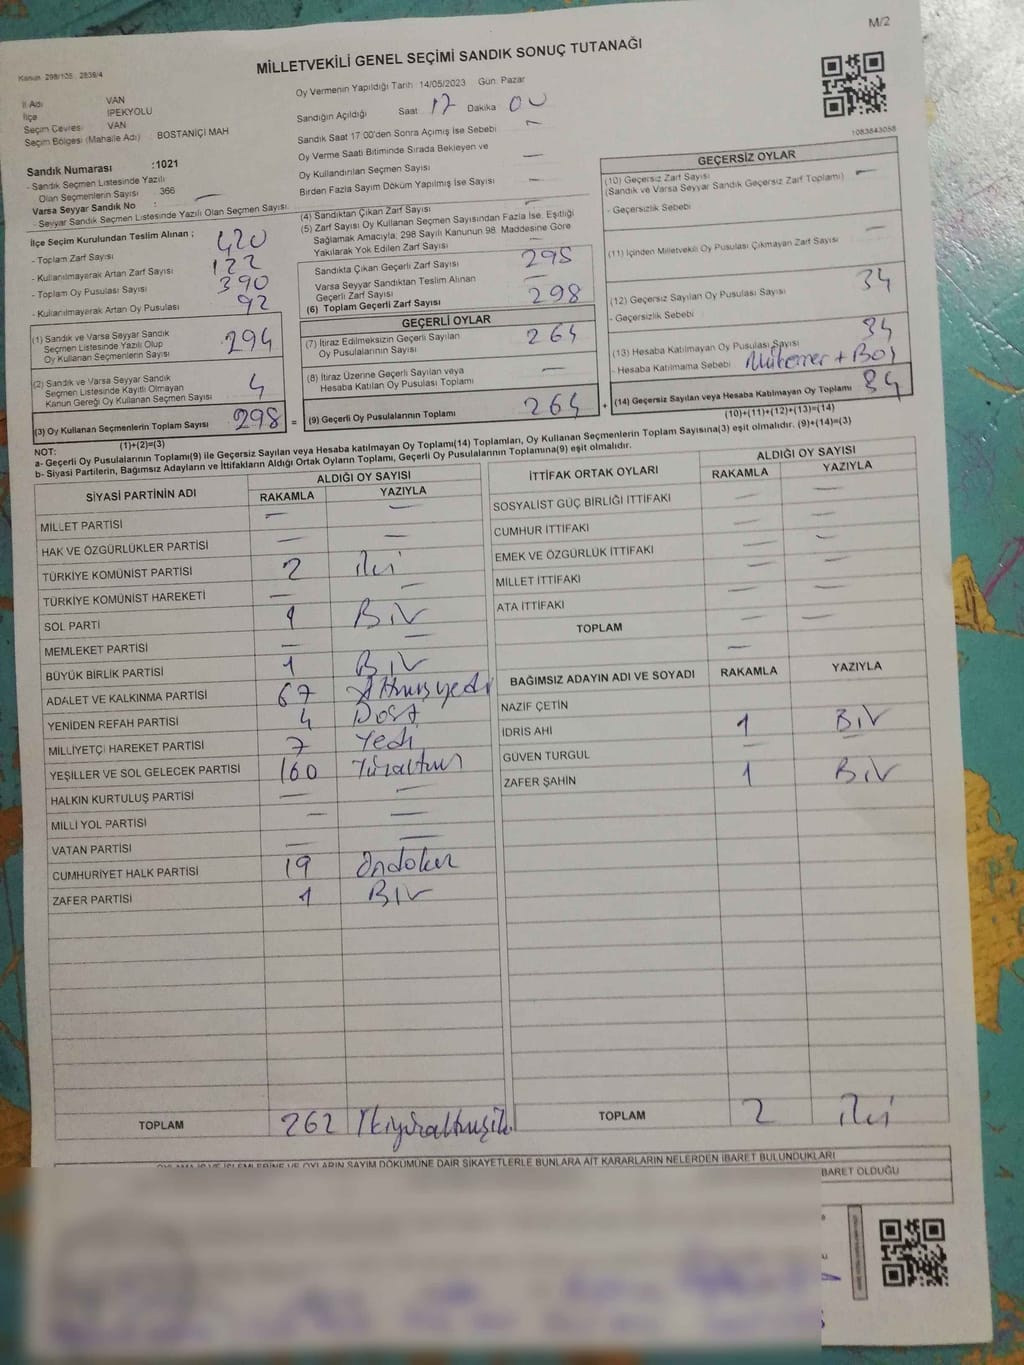 M/2
Kanun 298/105 2839/4
MİLLETVEKİLİ GENEL SEÇİMİ SANDIK SONUÇ TUTANAĞI
İl Adı VAN
İlçe İPEKYOLU
Seçim Çevresi VAN
Seçim Bölgesi (Mahalle Adı) BOSTANİÇİ MAH
Sandık Numarası :1021
- Sandık Seçmen Listesinde Yazılı
Olan Seçmenlerin Sayısı 366
Varsa Seyyar Sandık No :
- Seyyar Sandık Seçmen Listesinde Yazılı Olan Seçmen Sayısı:
Oy Vermenin Yapıldığı Tarih : 14/05/2023 Gün: Pazar
Sandığın Açıldığı Saat 17 Dakika 00
Sandık Saat 17:00'den Sonra Açılmış İse Sebebi —
Oy Verme Saati Bitiminde Sırada Bekleyen ve
Oy Kullandırılan Seçmen Sayısı —
Birden Fazla Sayım Döküm Yapılmış İse Sayısı —
1083843058
İlçe Seçim Kurulundan Teslim Alınan ;
- Toplam Zarf Sayısı 420
- Kullanılmayarak Artan Zarf Sayısı 122
- Toplam Oy Pusulası Sayısı 390
- Kullanılmayarak Artan Oy Pusulası 92
(1) Sandık ve Varsa Seyyar Sandık
Seçmen Listesinde Yazılı Olup
Oy Kullanan Seçmenlerin Sayısı 294
(2) Sandık ve Varsa Seyyar Sandık
Seçmen Listesinde Kayıtlı Olmayan
Kanun Gereği Oy Kullanan Seçmen Sayısı 4
(3) Oy Kullanan Seçmenlerin Toplam Sayısı 298
(1)+(2)=(3)
(4) Sandıktan Çıkan Zarf Sayısı —
(5) Zarf Sayısı Oy Kullanan Seçmen Sayısından Fazla İse, Eşitliği
Sağlamak Amacıyla, 298 Sayılı Kanunun 98. Maddesine Göre
Yakılarak Yok Edilen Zarf Sayısı —
Sandıkta Çıkan Geçerli Zarf Sayısı 298
Varsa Seyyar Sandıktan Teslim Alınan
Geçerli Zarf Sayısı —
(6) Toplam Geçerli Zarf Sayısı 298
GEÇERLİ OYLAR
(7) İtiraz Edilmeksizin Geçerli Sayılan
Oy Pusulalarının Sayısı 264
(8) İtiraz Üzerine Geçerli Sayılan veya
Hesaba Katılan Oy Pusulası Toplamı —
= (9) Geçerli Oy Pusulalarının Toplamı 264 +
GEÇERSİZ OYLAR
(10) Geçersiz Zarf Sayısı —
(Sandık ve Varsa Seyyar Sandık Geçersiz Zarf Toplamı)
- Geçersizlik Sebebi
(11) İçinden Milletvekili Oy Pusulası Çıkmayan Zarf Sayısı —
(12) Geçersiz Sayılan Oy Pusulası Sayısı 34
- Geçersizlik Sebebi
(13) Hesaba Katılmayan Oy Pusulası Sayısı 34
- Hesaba Katılmama Sebebi Mükerrer + Boş
(14) Geçersiz Sayılan veya Hesaba Katılmayan Oy Toplamı 34
(10)+(11)+(12)+(13)=(14)
NOT:
a- Geçerli Oy Pusulalarının Toplamı(9) ile Geçersiz Sayılan veya Hesaba katılmayan Oy Toplamı(14) Toplamları, Oy Kullanan Seçmenlerin Toplam Sayısına(3) eşit olmalıdır. (9)+(14)=(3)
b- Siyasi Partilerin, Bağımsız Adayların ve İttifakların Aldığı Ortak Oyların Toplamı, Geçerli Oy Pusulalarının Toplamına(9) eşit olmalıdır.
SİYASİ PARTİNİN ADI ALDIĞI OY SAYISI
RAKAMLA YAZIYLA
MİLLET PARTİSİ — —
HAK VE ÖZGÜRLÜKLER PARTİSİ — —
TÜRKİYE KOMÜNİST PARTİSİ 2 iki
TÜRKİYE KOMÜNİST HAREKETİ — —
SOL PARTİ 1 Bir
MEMLEKET PARTİSİ — —
BÜYÜK BİRLİK PARTİSİ 1 Bir
ADALET VE KALKINMA PARTİSİ 67 Altmışyedi
YENİDEN REFAH PARTİSİ 4 Dört
MİLLİYETÇİ HAREKET PARTİSİ 7 Yedi
YEŞİLLER VE SOL GELECEK PARTİSİ 160 Yüzaltmış
HALKIN KURTULUŞ PARTİSİ — —
MİLLİ YOL PARTİSİ — —
VATAN PARTİSİ — —
CUMHURİYET HALK PARTİSİ 19 Ondokuz
ZAFER PARTİSİ 1 Bir
TOPLAM 262 İkiyüzaltmışiki
İTTİFAK ORTAK OYLARI ALDIĞI OY SAYISI
RAKAMLA YAZIYLA
SOSYALİST GÜÇ BİRLİĞİ İTTİFAKI — —
CUMHUR İTTİFAKI — —
EMEK VE ÖZGÜRLÜK İTTİFAKI — —
MİLLET İTTİFAKI — —
ATA İTTİFAKI — —
TOPLAM — —
BAĞIMSIZ ADAYIN ADI VE SOYADI RAKAMLA YAZIYLA
NAZİF ÇETİN
İDRİS AHİ 1 Bir
GÜVEN TURGUL — —
ZAFER ŞAHİN 1 Bir
TOPLAM 2 iki
OYLAMA İŞ VE İŞLEMLERİNE VE OYLARIN SAYIM DÖKÜMÜNE DAİR ŞİKAYETLERLE BUNLARA AİT KARARLARIN NELERDEN İBARET BULUNDUKLARI
BARET OLDUĞU